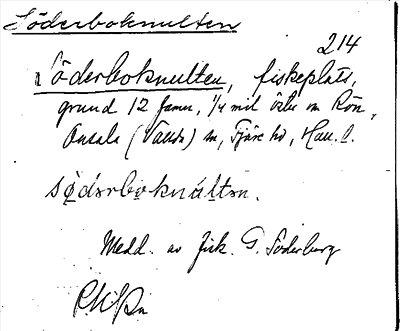 Söderboknulten
214
Söderboknulten, fiskeplats,
grund 12 famn, 1/4 mil
Onsala (Vallda) sn, Fjäre hd, Hall. l.
södərboknúltən.
Medd. av fisk. G. Söderberg